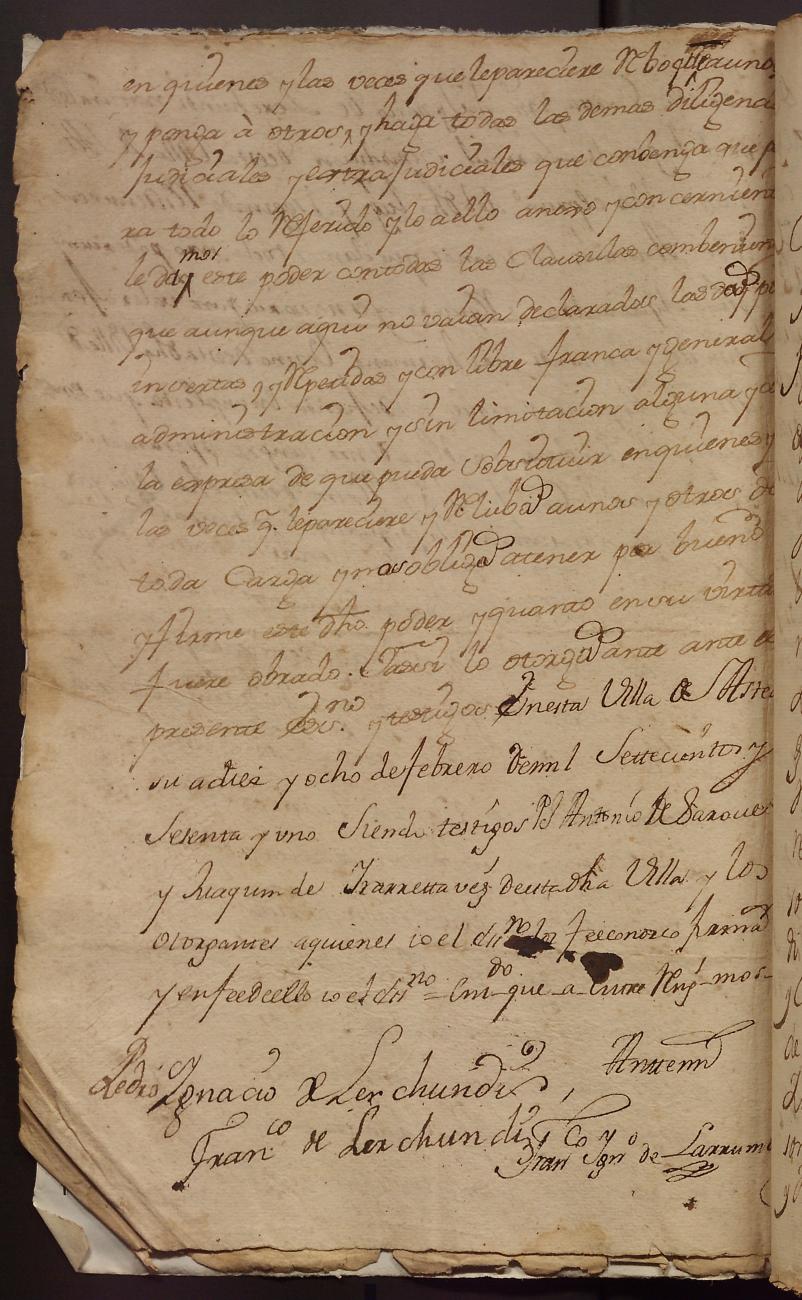 en quienes y las veces que lepareciere Reboque aunos
y ponga à otros, y haga todas las demas diligencia
Judiciales y extraJudiciales que conbenga que p
ra todo lo Referido y lo a ello anexo y concernien
le damos este poder contodas las Clausulas combenien
que aunque aqui no vaian declaradas las
incertas, y Repetidas y con libre franca y general
administracion y sin limitacion alguna y co
la expresa de que pueda sobstituir en quienes y
las veces q. lepareciere y Reliba aunos y otros de
toda Carga y nos obliga atener por bueno
y firme este dho. poder y quanto en su virtu
fuere obrado. Y assi lo otorga ante el
presente Esno. y testigos Enesta Villa de
su adiez y ocho defebrero demil Settecientos y
Sesenta y uno Siendo testigos Antonio de
y Juaquin de Izarretta vez. de esta dha Villa y los
otorgantes aquienes io el essno feeconozco firma
y enfeedeello io el essno = Emdo que a entre Reng. mos
Pedro Ignacio de Lerchundi, Antemi
Franco de Lerchundi
Fran Igno de Larrum